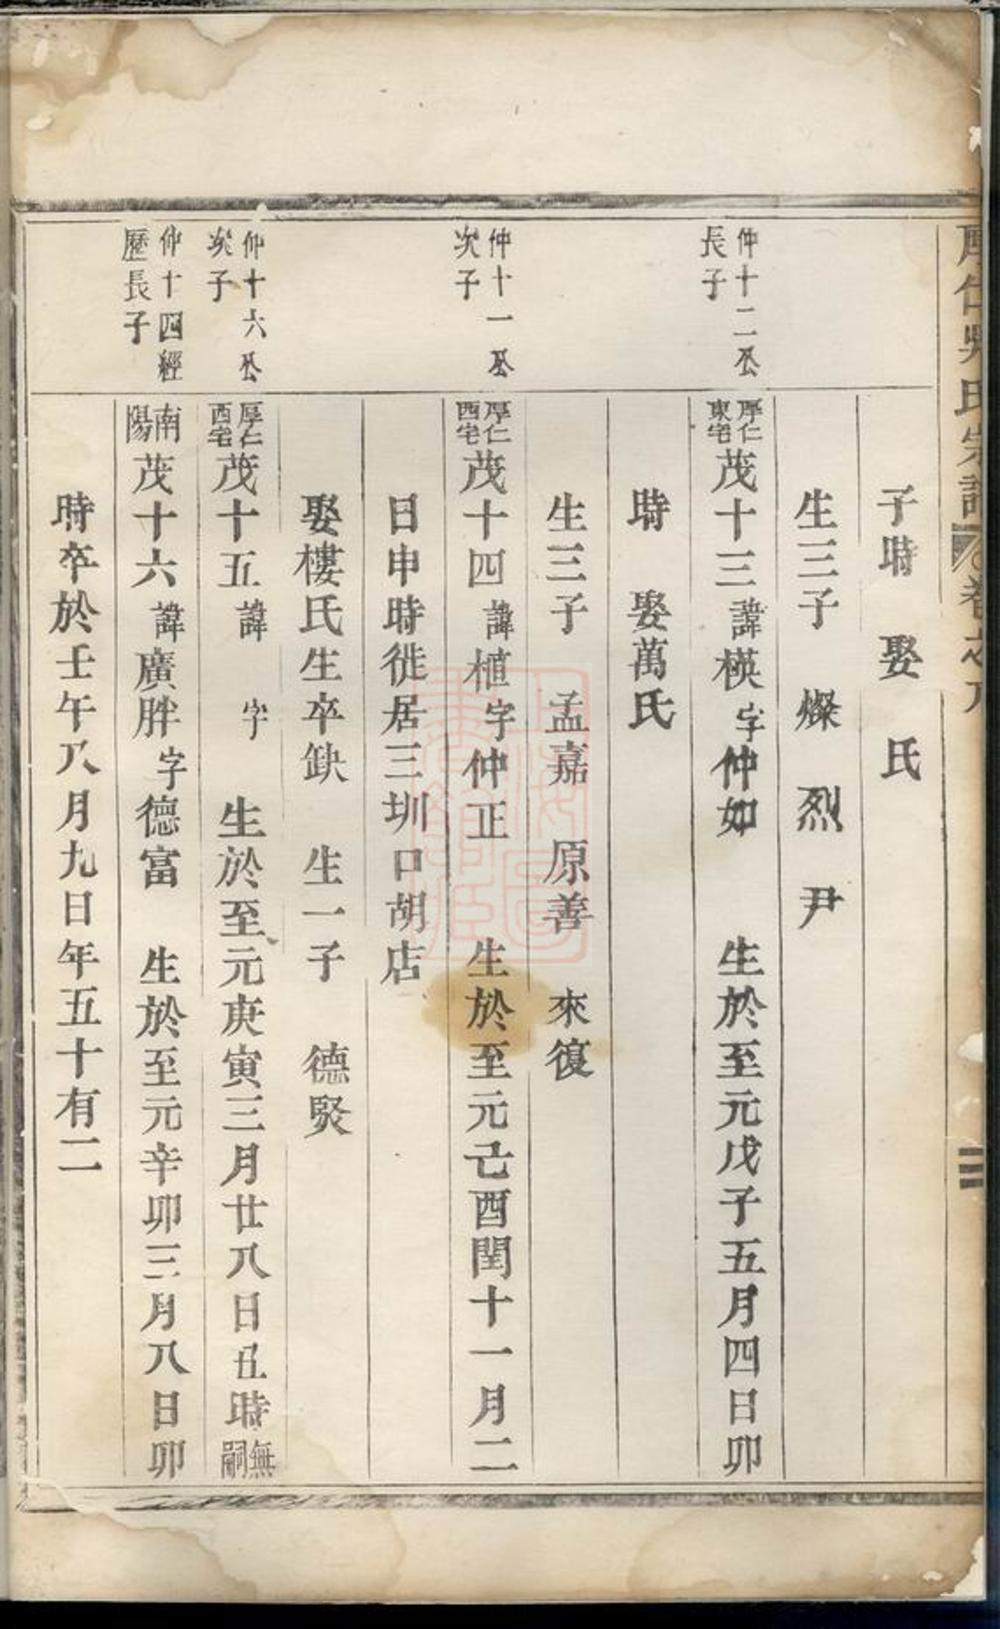 厚仁吳氏宗譜 卷之八
三
子時 娶 氏
生三子 燦 烈 尹
仲十二公長子
厚仁東宅茂十三諱楧字仲如 生於至元戊子五月四日卯
時 娶萬氏
生三子 孟嘉 原善 來復
仲十一公次子
厚仁西宅茂十四諱植字仲正 生於至元己酉閏十一月二
日申時徙居三圳口胡店
娶樓氏生卒缺 生一子 德賢
仲十六公次子
厚仁西宅茂十五諱 字 生於至元庚寅三月廿八日丑時無嗣
仲十四經歷長子
南陽茂十六諱廣胖字德富 生於至元辛卯三月八日卯
時卒於壬午八月九日年五十有二